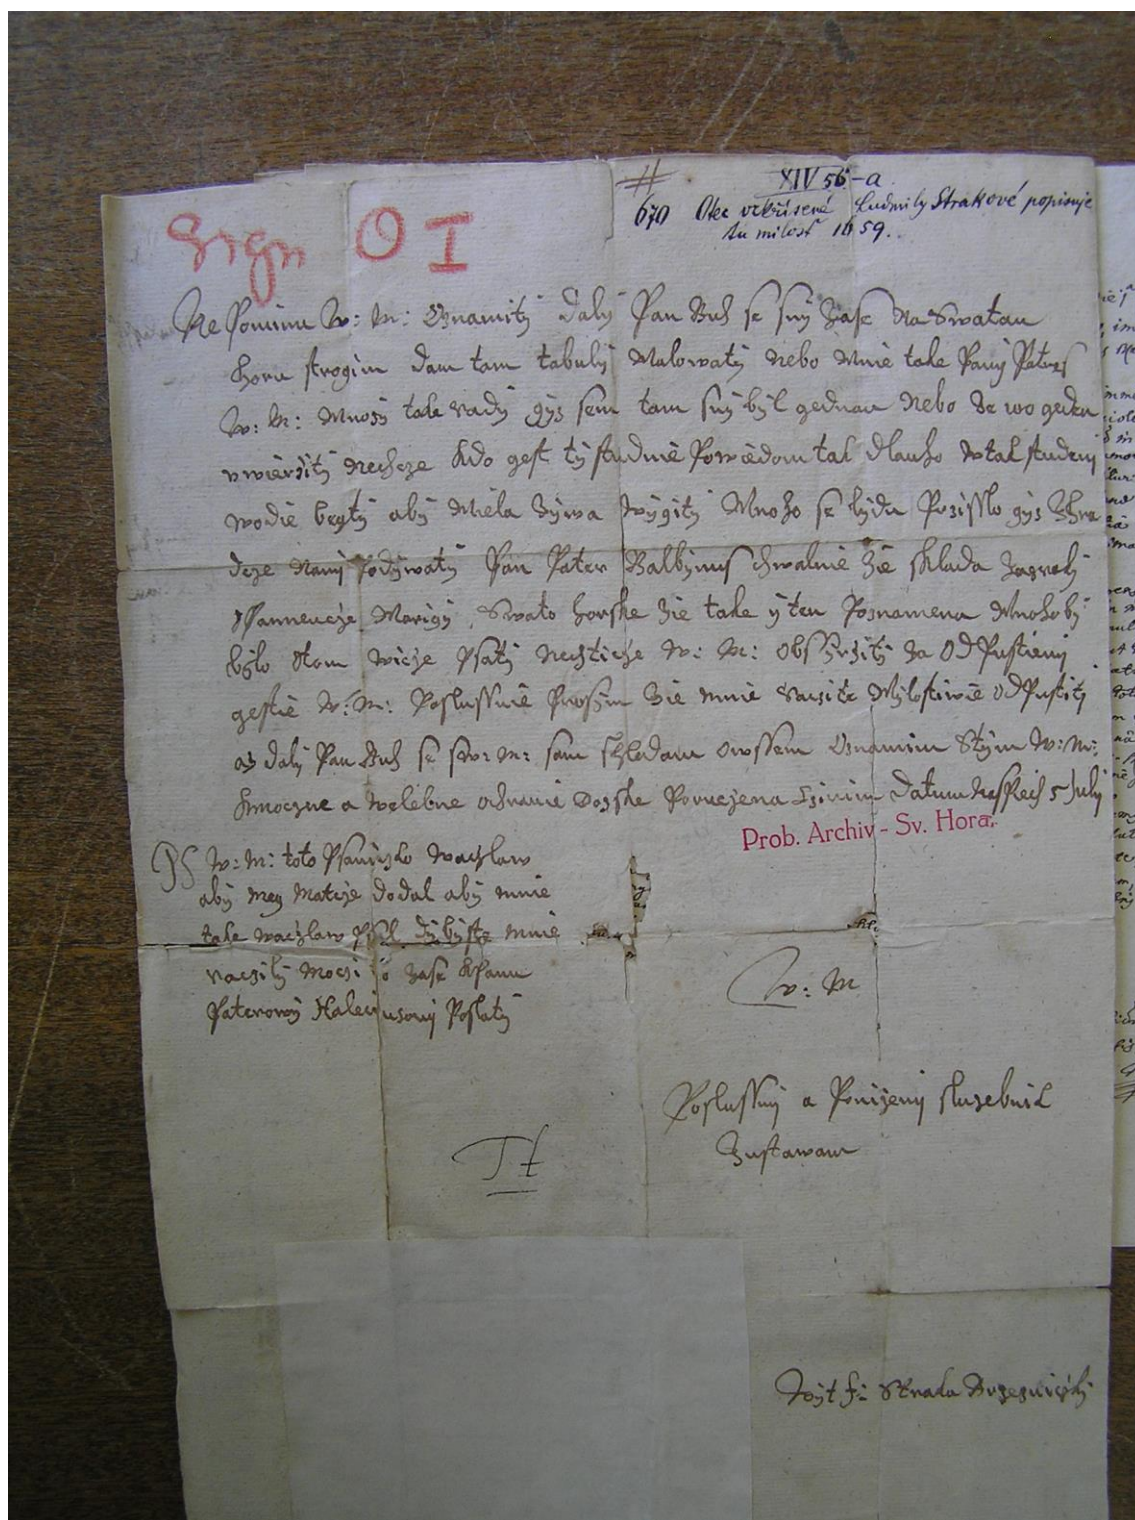 XIV 56-a
670 Otec vzkříšené Ludmily Strakové popisuje
tu milost 1659.
Sign O I
Nepominu W: M: Oznamiti daly Pan Buh se sny zase na Swatau
horu strogim dam tam tabuly Malowaty nebo Mnie take Pany Patres
W: M: Mnozy take rady gys sem tam sny byl gednau nebo
uwierzity nechcze kdo gest ty studnie Powiedom tak dlauho wtak studeny
wodie beyty aby Miela zywa wygity Mnoho se lydu Przisslo gys
Pan Pater Balbynus chwalnie zie sklada
Pannencze Marigi Swato horske zie take y ten Poznamena Mnoho by
bylo otom wicze Psaty nechticze W: M: obtzirzity za odPustieny
gestie W: M: Poslussnie Prosym zie mnie raczite Mylostiwie odPustity
az daly Pan Buh se sw: M: sam shledam owssem Oznamim Stym W: M:
hmoczne a welebne ochranie Bozske Poruczena czinim Datum 5 July
Prob. Archiv - Sv. Hora.
PS W: M: toto Psaniczko Waczlaw
aby mey Matcze dodal aby mnie
take Waczlaw dybyste mnie
raczily zase kPanu
Paterowy Poslaty
W: M
Poslussny a Ponizeny sluzebnik
Zustawam
Wyt f: Straka